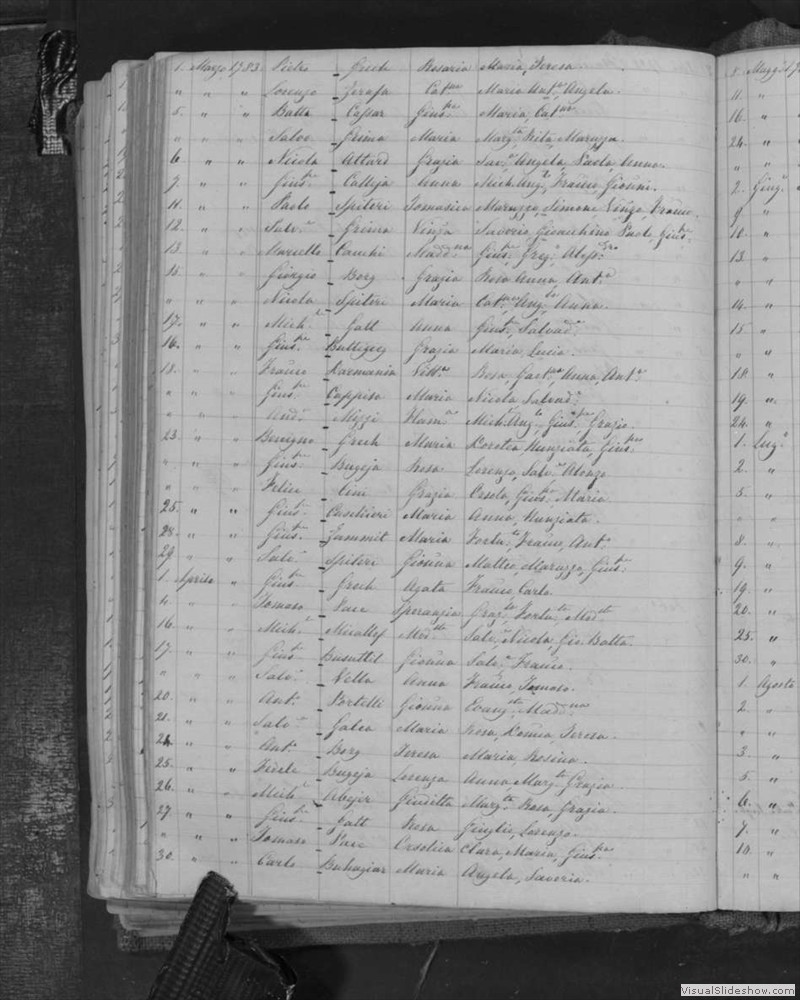 1. Marzo 1783. Pietro Grech Rosaria Maria, Teresa.
" " " Lorenzo Zerafa Catna Maria Anta, Angela.
5. " " Batta Caspar Giuspe Maria, Catna
" " " Salvo Grima Maria Margta, Rita, Maruzza.
6. " " Nicola Attard Grazia Salvr, Angela, Paola, Anna.
7. " " Giuse Calleja Anna Mich. Ango, Franco, Gionni.
11. " " Paolo Spiteri Tomasica Maruzza, Simone, Vinza, Franco.
12. " " Salvr Grima Vinza Saverio, Gioachino, Paolo, Giuse
13. " " Marcello Cauchi Madna Giuse, Greg,
15. " " Giorgio Borg Grazia Rosa Anna, Anta
" " " Nicola Spiteri Maria Catna, Anga, Anna.
17. " " Michl Galt Anna Giuse, Salvadr
16. " " Giuse Buttigieg Grazia Maria, Lucia.
18. " " Franco Darmanin Vitta Rosa, Gaetna, Anna, Anta
" " " Giuse Coppiso Maria Nicola, Salvadr
" " " Andr Mizzi Flama Mich. Ango, Giuspe, Grazio.
23. " " Benigno Grech Maria Dorotea, Nunziata, Giuspe
" " " Giuse Bugeja Rosa Lorenzo, Salvr, Alonzo
" " " Felice Cini Grazia Orsola, Giuspe, Maria
25. " " Giuse Caschieri Maria Anna, Nunziata.
28. " " Giuse Zammit Maria Forta, Franco, Anto
29. " " Salvr Spiteri Gionna Matteo, Maruzza, Giuse
1. Aprile " Giuse Grech Agata Franco, Carlo.
4. " " Tomaso Pace Speranzia Grazla, Fortta, Modte
16. " " Michl Micallef Modta Salvr, Nicola, Gio. Batta.
17. " " Giuse Busuttil Gionna Salvr, Franco.
" " " Salvr Vella Anna Franco, Tomaso.
20. " " Anto Portelli Gionna Evangta, Madna
21. " " Salvr Galea Maria Rosa, Domca, Teresa.
24. " " Anto Borg Teresa Maria, Rosina.
25. " " Fidele Bugeja Lorenza Anna, Margta, Grazia.
26. " " Michl Abejer Giuditta Margta, Rosa, Grazia.
27. " " Giuse Galt Rosa Giuglio, Lorenzo.
" " " Tomaso Pace Orsolica Clara, Maria, Giuspe
30. " " Carlo Buhagiar Maria Angela, Saveria.
8. Magg. 17
11. "
16. "
24. "
" "
2. Giugo
9. "
10. "
13. "
" "
14. "
15. "
" "
18. "
19. "
24. "
1. Lugo
2. "
5. "
" "
8. "
9. "
19. "
20. "
25. "
30. "
1. Agosto
2. "
" "
3. "
5. "
6. "
7. "
10. "
" "
VisualSlideshow.com